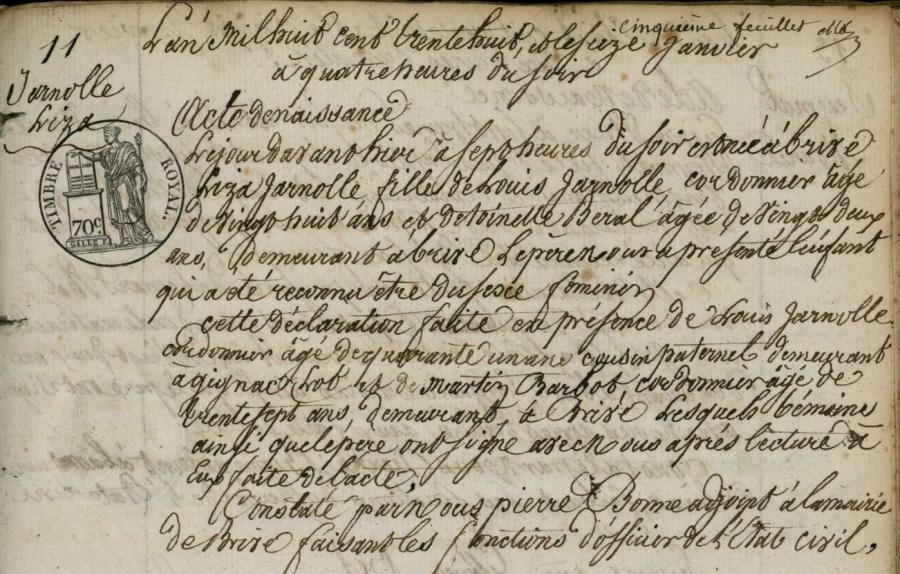 Cinquième feuillet
11
Jarnolle
Liza
L'an Mil huit cent trente huit, et le seize Janvier
à quatre heures du soir
Acte de naissance
Le jour d'avant hier à sept heures du soir est née à brive
Liza Jarnolle, fille de Louis Jarnolle, cordonnier âgé
de Vingt huit ans et de toinette Beral âgée de Vingt deux
ans, demeurant à brive. Le père nous a présenté l'enfant
qui a été reconnu être du sexe féminin
cette déclaration faite en présence de Louis Jarnolle
cordonnier âgé de quarante un ans cousin paternel demeurant
à gignac Lot et de Martin Barbot cordonnier âgé de
trente sept ans, demeurant à Brive Lesquels témoins
ainsi que le père ont signé avec nous après lecture à
Eux faite de l'acte.
Constaté par Nous pierre Bonne adjoint à la mairie
de Brive faisant les fonctions d'officier de l'Etat civil,
TIMBRE ROYAL.
70c.